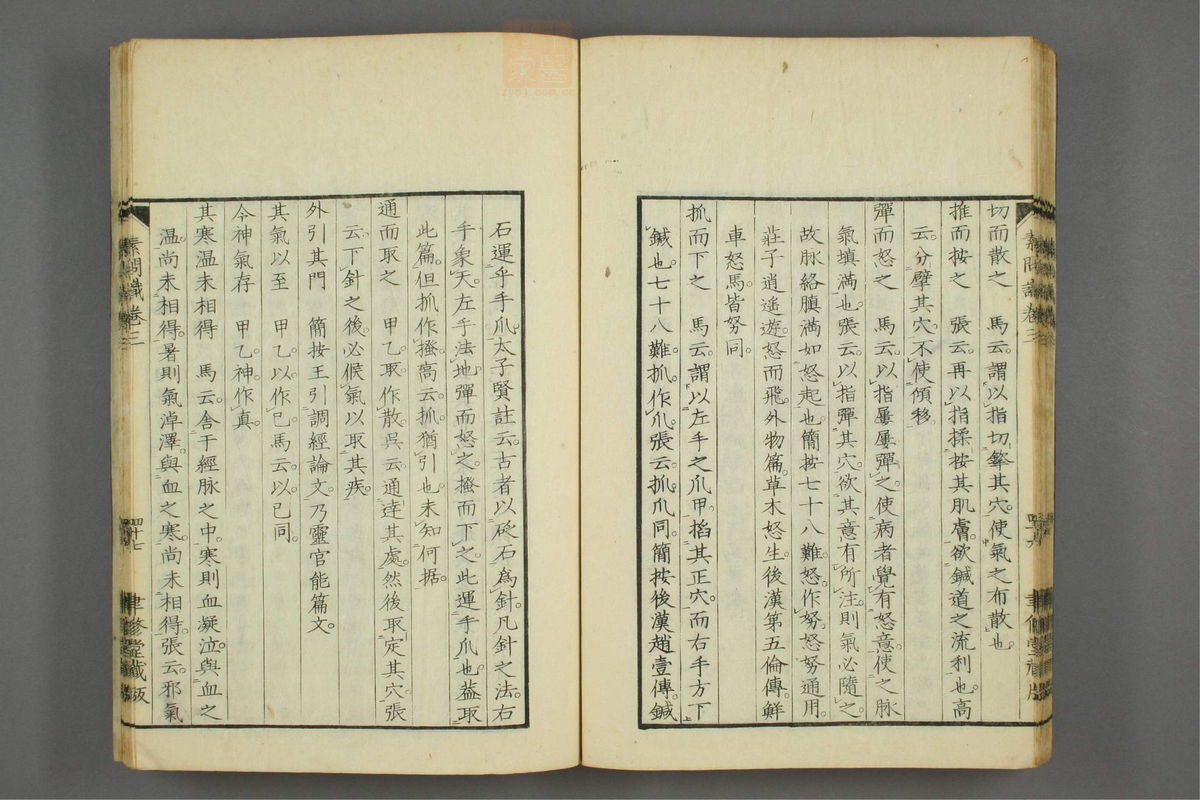 切而散之　馬云謂以指切擎其穴使氣之布散也
推而按之　張云再以指揉按其肌膚欲鍼道之流利也高
云分擘其穴不使傾移
彈而怒之　馬云以指屢屢彈之使病者覺有怒意使之脉
氣填滿也張云以指彈其穴欲其意有所注則氣必隨之
故脉絡䐜滿如怒起也簡按七十八難怒作努怒努通用
莊子逍遙遊怒而飛外物篇草木怒生後漢第五倫傳鮮
車怒馬皆努同
抓而下之　馬云謂以左手之爪甲掐其正穴而右手方下
鍼也七十八難抓作爪張云抓爪同簡按後漢趙壹傳鍼
素問識卷三
聿修堂藏版
石運乎手爪太子賢註云古者以砭石為針凡針之法右
手象天左手法地彈而怒之搔而下之此運手爪也葢取
此篇但抓作搔高云抓猶引也未知何据
通而取之　甲乙取作散吳云通達其處然後取定其穴張
云下針之後必候氣以取其疾
外引其門　簡按王引調經論文乃靈官能篇文
其氣以至　甲乙以作已馬云以已同
令神氣存　甲乙神作真
其寒温未相得　馬云舍于經脉之中寒則血凝泣與血之
温尚未相得暑則氣淖澤與血之寒尚未相得張云邪氣
素問識卷三
四十七
聿修堂藏版